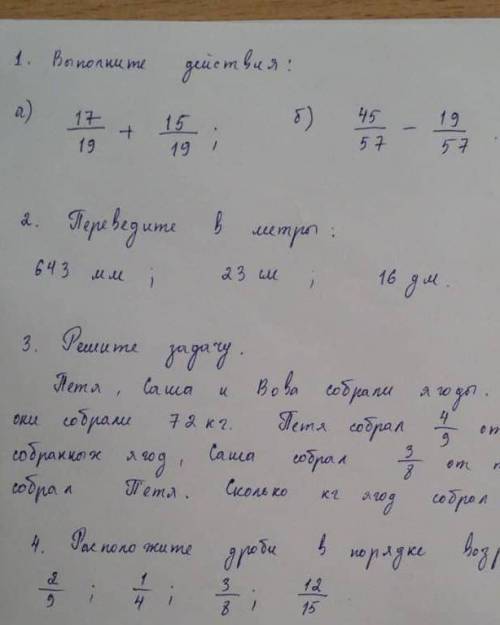 1. Выполните действия:
а) 17/19 + 15/19 ; б) 45/57 - 19/57 .
2. Переведите в метры:
643 мм ; 23 см ; 16 дм.
3. Решите задачу.
Петя, Саша и Вова собрали ягоды.
они собрали 72 кг. Петя собрал 4/9 от
собранных ягод, Саша собрал 3/8 от
собрал Петя. Сколько кг ягод собрал
4. Расположите дроби в порядке возр
2/9 ; 1/4 ; 3/8 ; 12/15